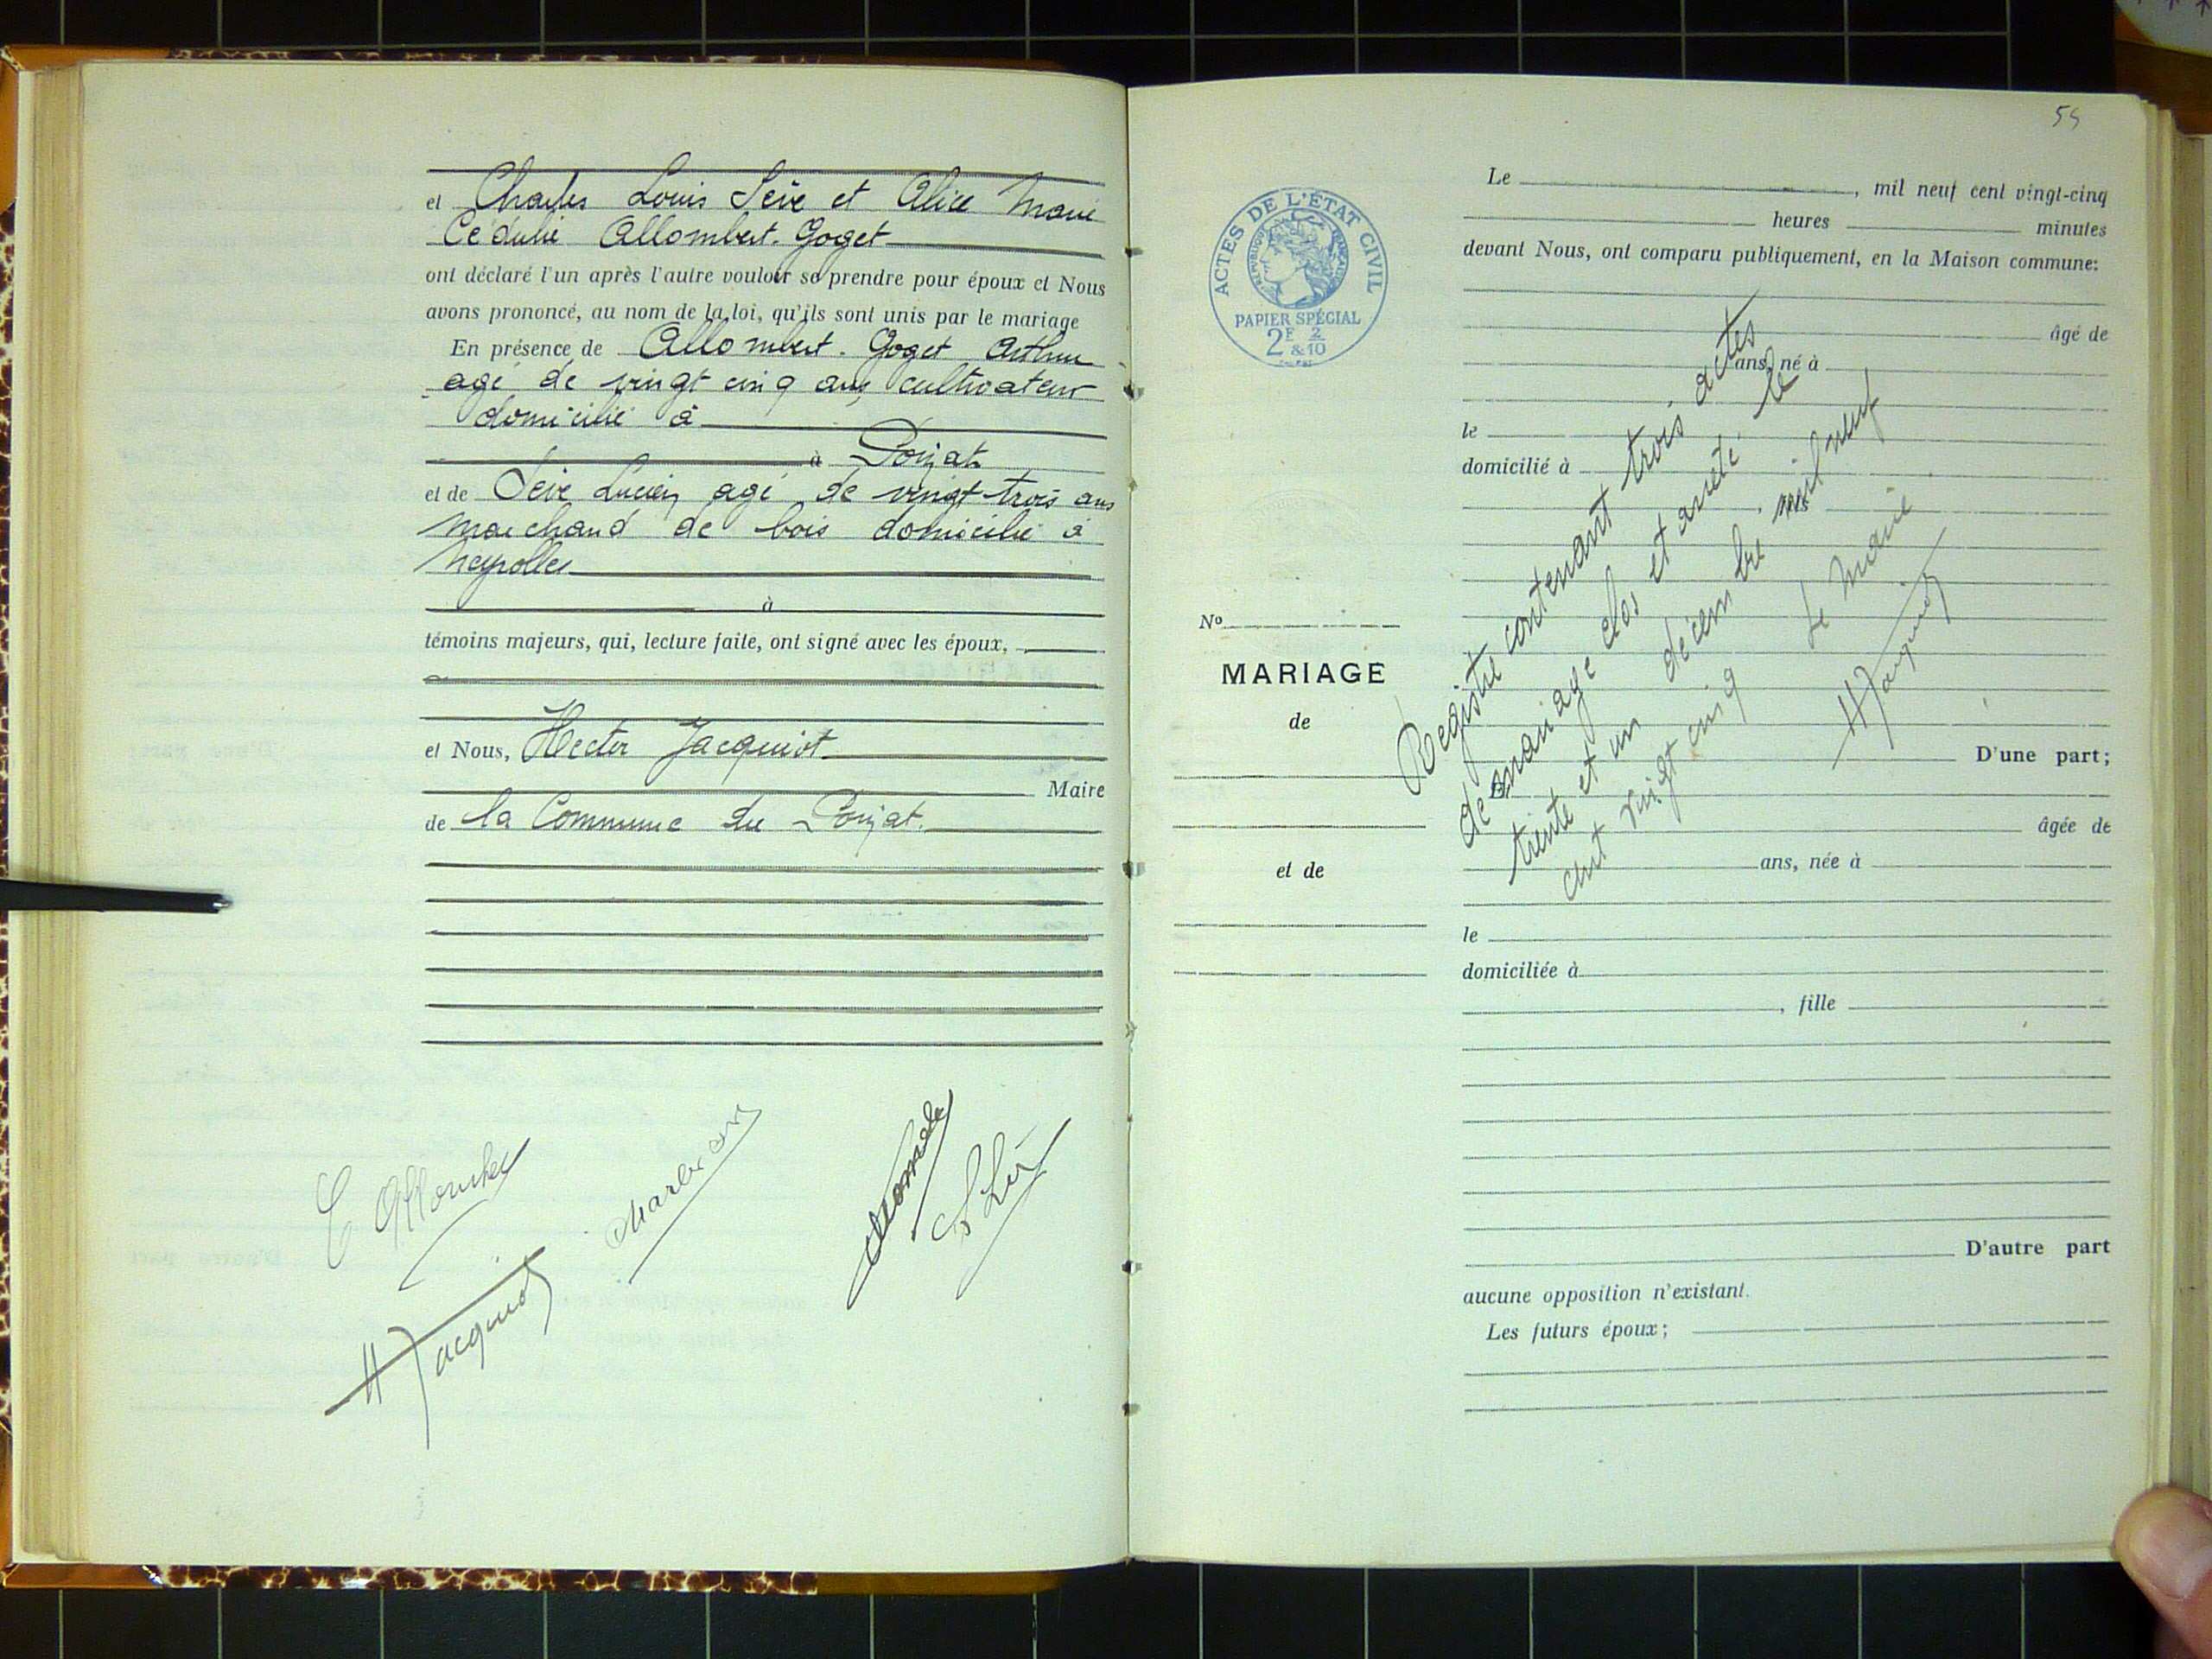 et Charles Louis Sève et Alice Marie
Cédulie Allombert-Goget
ont déclaré l'un après l'autre vouloir se prendre pour époux et Nous
avons prononcé, au nom de la loi, qu'ils sont unis par le mariage
En présence de Allombert-Goget Arthur
agé de vingt cinq ans, cultivateur
domicilié à
à Poizat
et de Sève Lucien agé de vingt-trois ans
marchand de bois domicilié à
Neyrolles
à
témoins majeurs, qui, lecture faite, ont signé avec les époux,
et Nous, Hector Jacquiot
Maire
de la Commune du Poizat.
C Allombert
H Jacquiot
59
ACTES DE L'ÉTAT CIVIL
RÉPUBLIQUE FRANÇAISE
PAPIER SPÉCIAL
2F 2
&10
No
MARIAGE
de
et de
Le , mil neuf cent vingt-cinq
heures minutes
devant Nous, ont comparu publiquement, en la Maison commune:
âgé de
ans, né à
le
domicilié à
, fils
D'une part;
et
âgée de
ans, née à
le
domiciliée à
, fille
D'autre part
aucune opposition n'existant.
Les futurs époux;
Registre contenant trois actes
de mariage clos et arrêté le
trente et un décembre mil neuf
cent vingt cinq
Le Maire
H Jacquiot